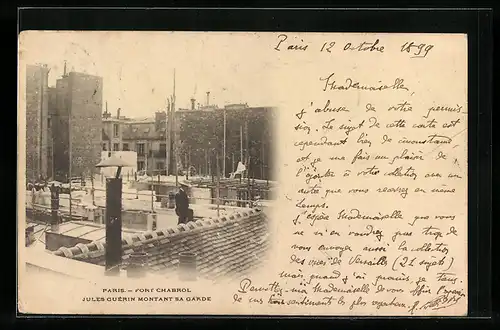 Paris 12 octobre 1899
Mademoiselle,
J'abuse de votre permis
sion. Le sujet de cette carte est
cependant bien de circonstance
et je me fais un plaisir de
l'ajouter à votre collection avec un
autre que vous recevrez en même
temps.
J'espère Mademoiselle que vous
ne m'en voudrez pas trop de
vous envoyer aussi la collection
des vues de Versailles (21 sujets)
mais quand j'ai promis, je tiens.
Permettez-moi Mademoiselle de vous offrir
de mes sentiments les plus
PARIS. — FORT CHABROL
JULES GUÉRIN MONTANT SA GARDE